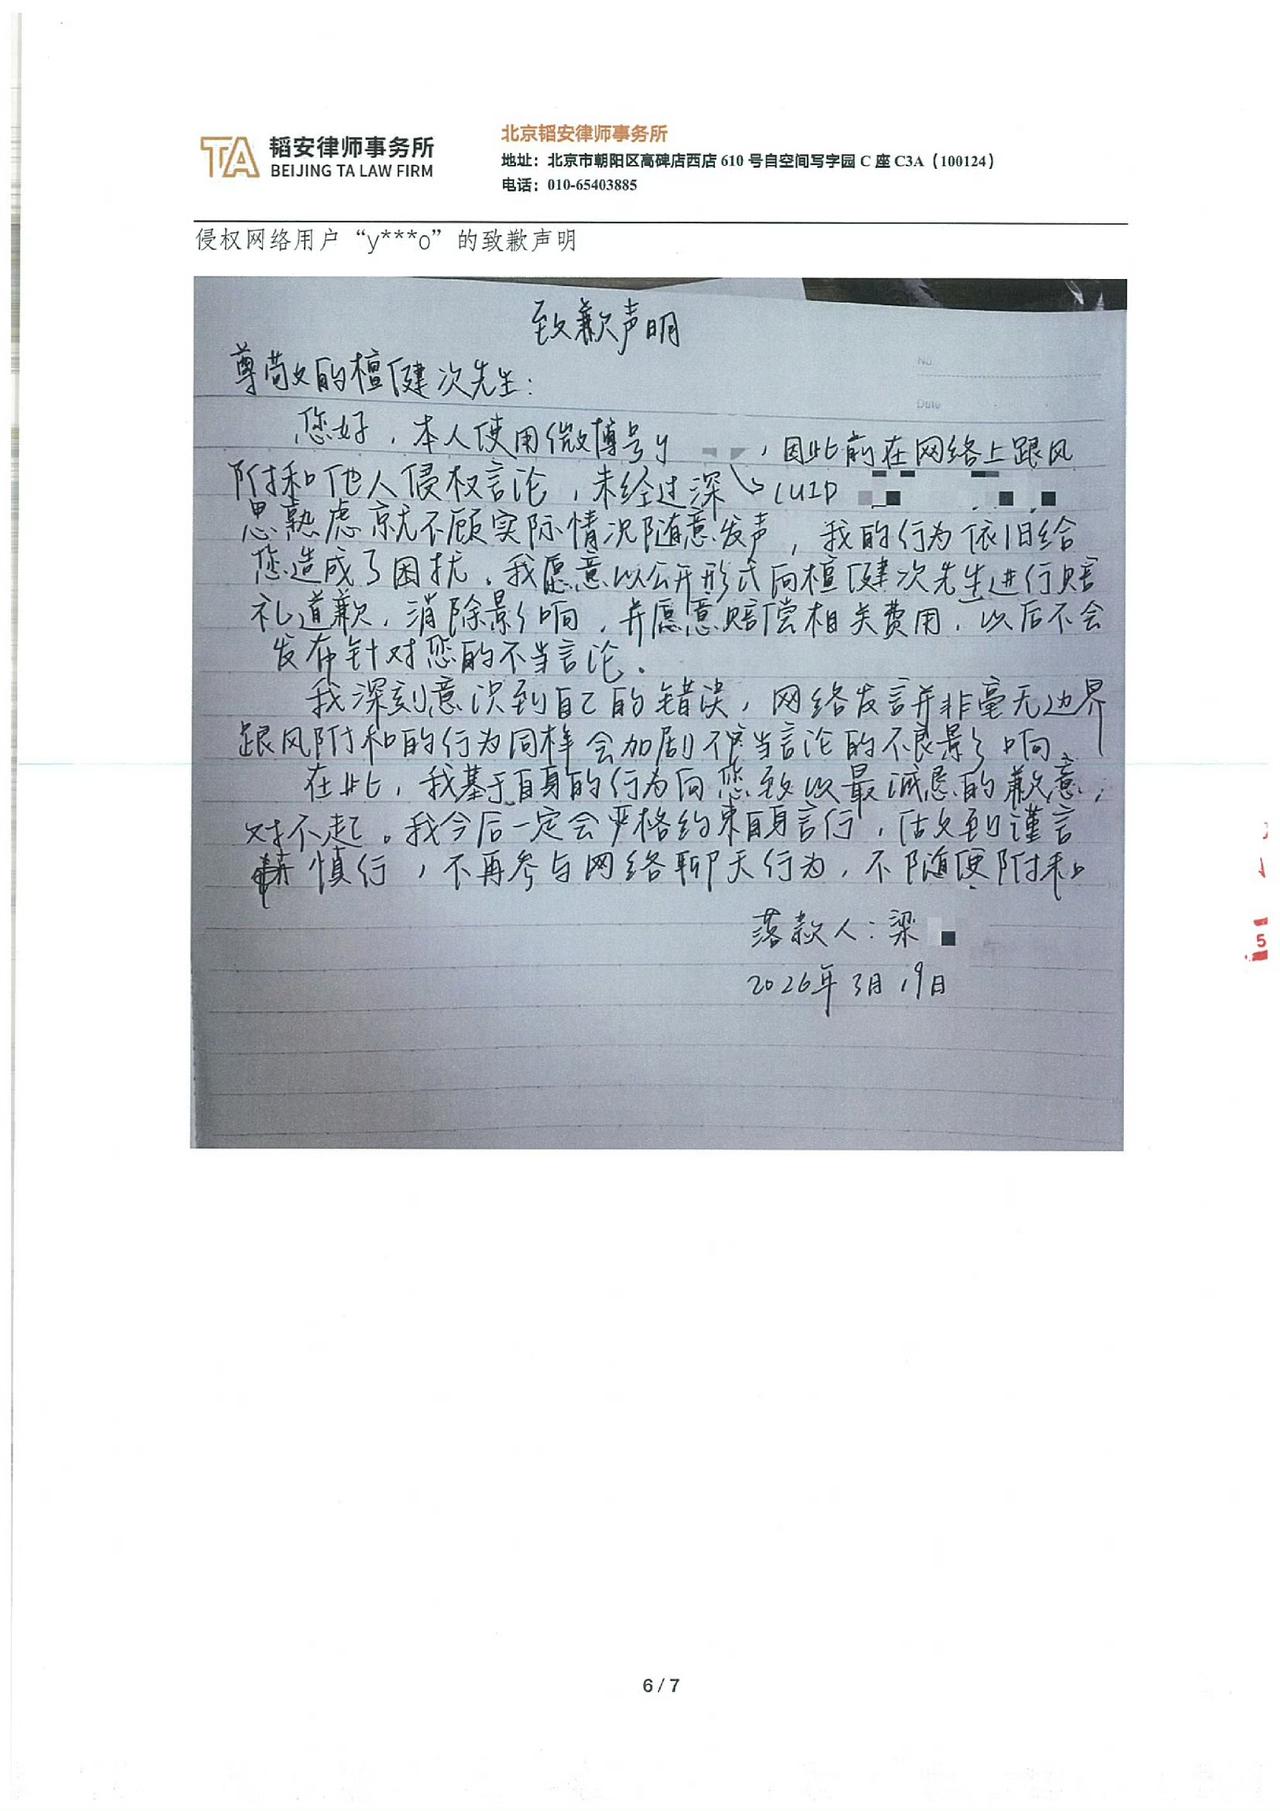 TA 韬安律师事务所
BEIJING TA LAW FIRM
北京韬安律师事务所
地址：北京市朝阳区高碑店西店 610 号自空间写字园 C 座 C3A（100124）
电话：010-65403885
侵权网络用户“y***o”的致歉声明
致歉声明
No
Date
尊敬的檀健次先生：
您好，本人使用微博号y ，因此前在网络上跟风
附和他人侵权言论，未经过深 (UID
思熟虑就不顾实际情况随意发声，我的行为依旧给
您造成了困扰。我愿意以公开形式向檀健次先生进行赔
礼道歉，消除影响，并愿意赔偿相关费用，以后不会
发布针对您的不当言论。
我深刻意识到自己的错误，网络发言并非毫无边界
跟风附和的行为同样会加剧不当言论的不良影响
在此，我基于自身的行为向您致以最诚恳的歉意，
对不起。我今后一定会严格约束自身言行，做到谨言
慎行，不再参与网络聊天行为，不随便附和。
落款人：梁
2026年3月19日
5
6 / 7